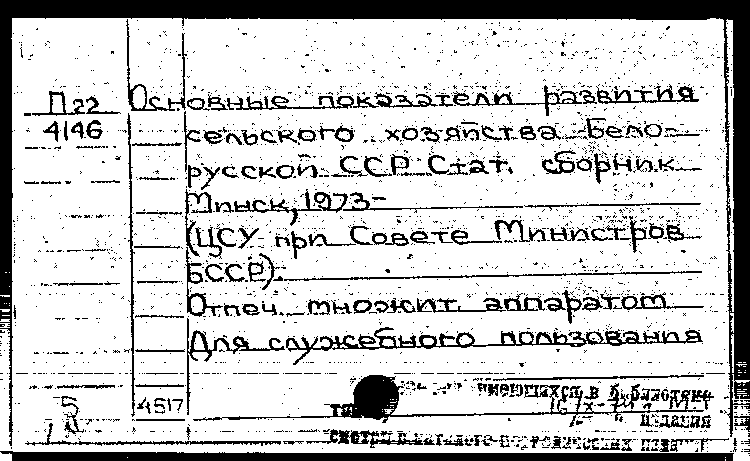 П22 Основные показатели развития
4146 сельского хозяйства Бело-
русской ССР Стат. сборник
Минск, 1973-
(ЦСУ при Совете Министров
БССР).
Отпеч. множит. аппаратом
Для служебного пользования
имеющихся в библиотеке
Б 4517
издания
смотри в каталоге